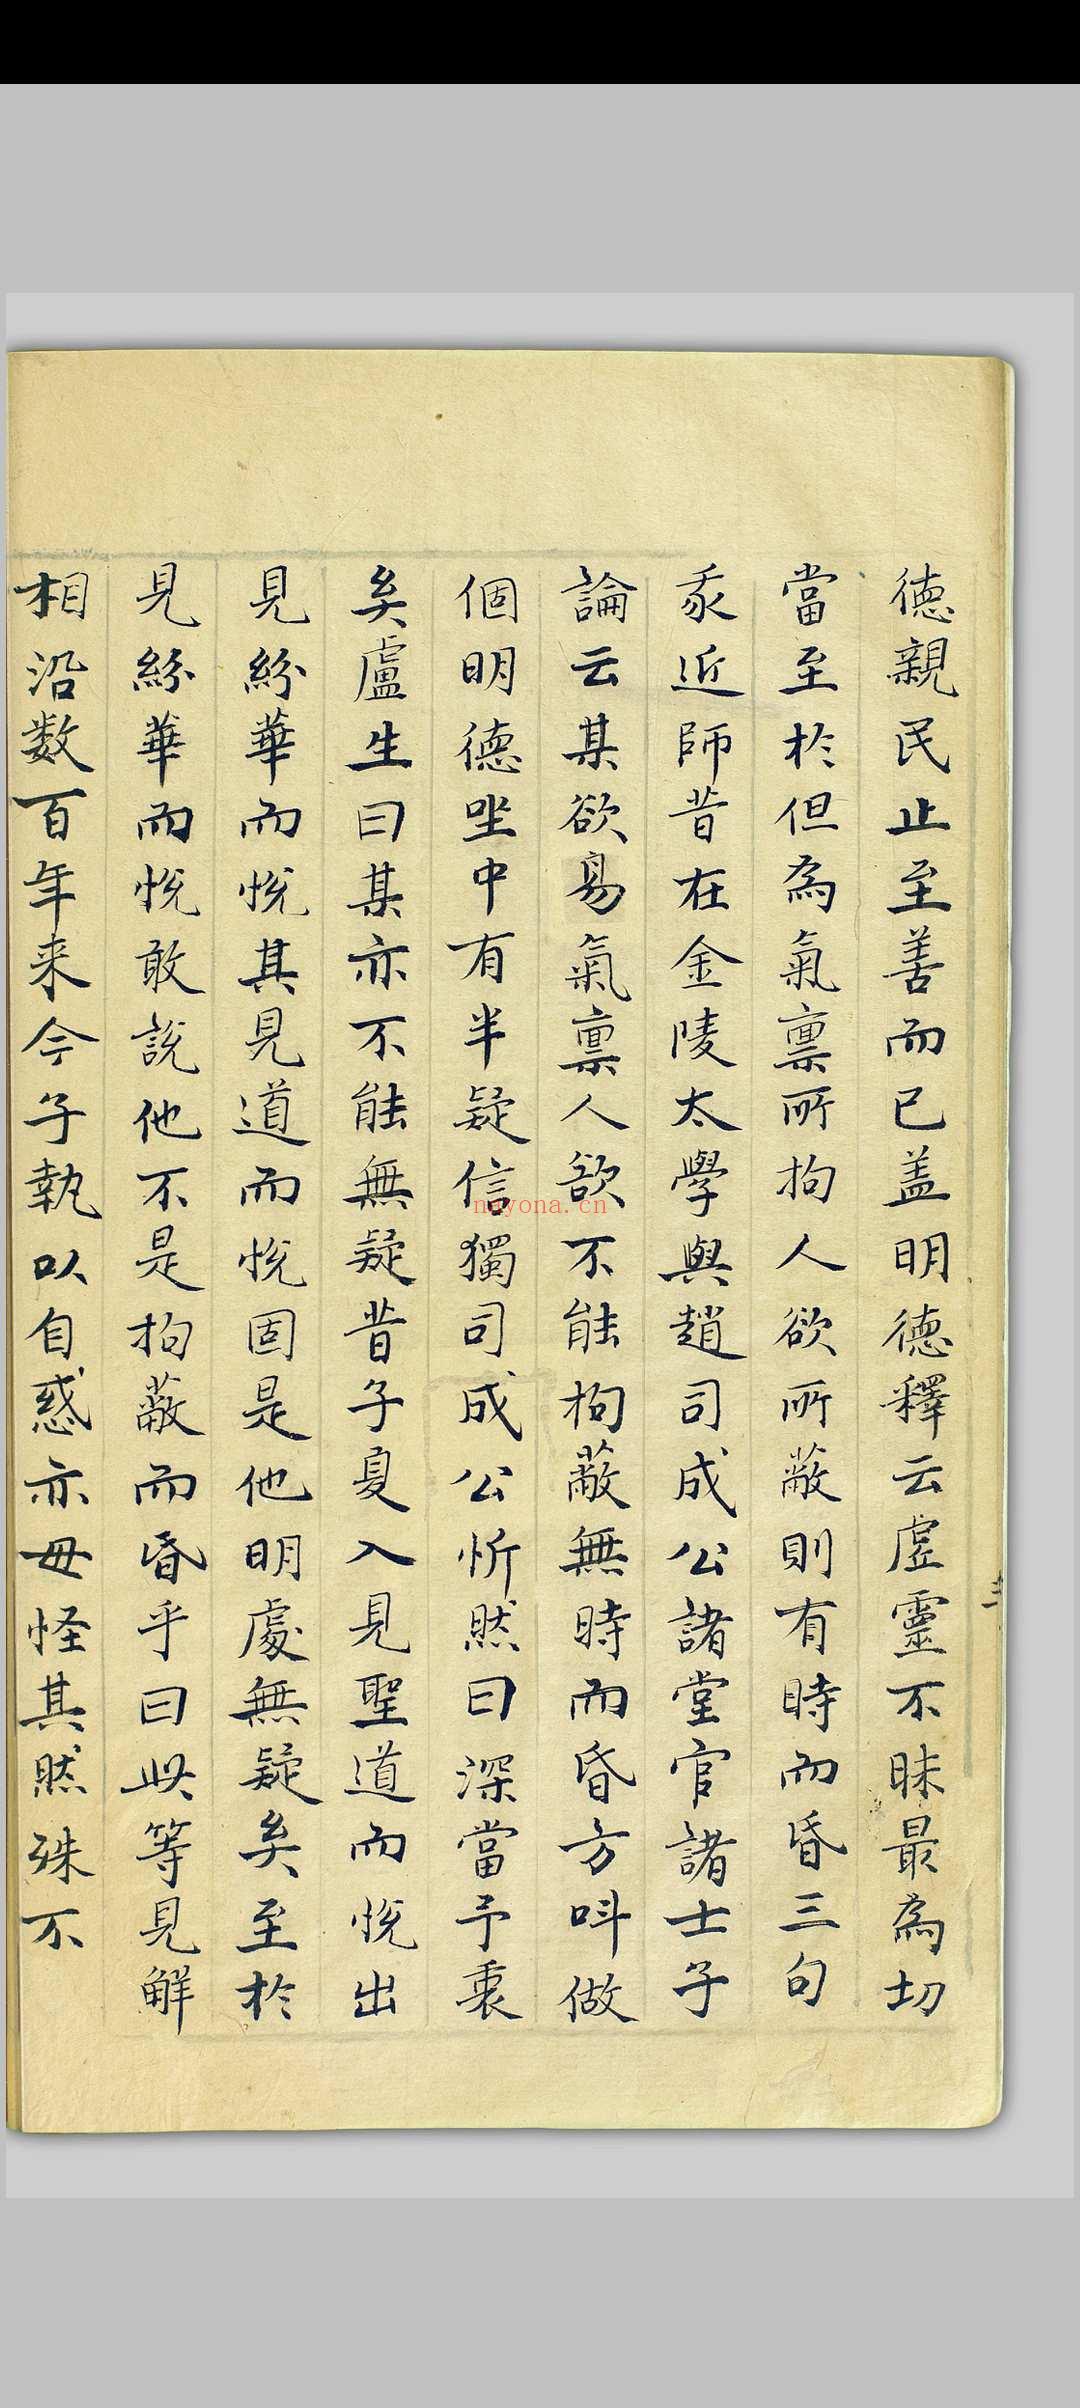 德親民止至善而已盖明德釋云虛靈不昧最為切
當至於但為氣禀所拘人欲所蔽則有時而昏三句
亥近師昔在金陵太學與趙司成公諸堂官諸士子
論云某欲易氣禀人欲不能拘蔽無時而昏方呌做
個明德坐中有半疑信獨司成公忻然曰深當予衷
矣盧生曰某亦不能無疑昔子夏入見聖道而悅出
見紛華而悅其見道而悅固是他明處無疑矣至於
見紛華而悅敢說他不是拘蔽而昏乎曰此等見解
相沿数百年来今子執以自惑亦毋怪其然殊不
nayona.cn